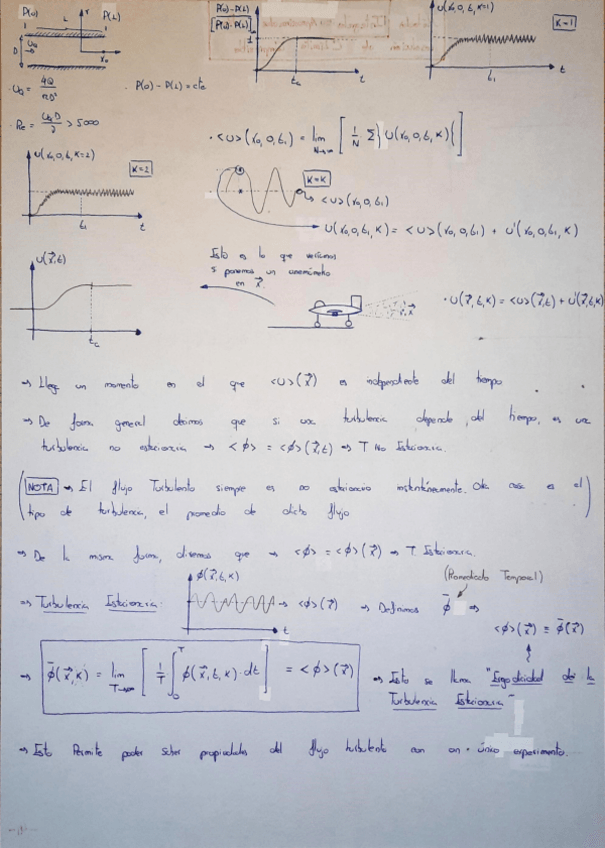 P(0) L P(L) r
D U_Q x_0
P(0)-P(L)
[P(0)-P(L)]
1
t_c t
U(x_0,0,t,K=1)
K=1
t_1 t
· U_Q = 4Q / πD²
· P(0) - P(L) = cte
· Re = U_Q D / ν > 5000
· <U>(x_0,0,t_1) = lim N→∞ [ 1/N Σ } U(x_0,0,t,K) { ]
U(x_0,0,t,K=2)
K=2
t_1 t
K=K
→ <U>(x_0,0,t_1)
U(x_0,0,t_1,K) = <U>(x_0,0,t_1) + U'(x_0,0,t_1,K)
U(x⃗,t)
t_c t
Esto es lo que veríamos
si ponemos un anemómetro
en x⃗.
· U(x⃗,t,K) = <U>(x⃗,t) + U'(x⃗,t,K)
⇒ Llega un momento en el que <U>(x⃗) es independiente del tiempo
⇒ De forma general decimos que si una turbulencia depende del tiempo, es una
turbulencia no estacionaria ⇒ <ϕ> = <ϕ>(x⃗,t) ⇒ T No Estacionaria.
(NOTA ⇒ El flujo Turbulento siempre es no estacionario instantáneamente. Otra cosa es el
tipo de turbulencia, el promedio de dicho flujo)
⇒ De la misma forma, diremos que ⇒ <ϕ> = <ϕ>(x⃗) ⇒ T. Estacionaria.
(Promediado Temporal)
⇒ Turbulencia Estacionaria: ϕ(x⃗,t,K) t ⇒ <ϕ>(x⃗) ⇒ Definimos ϕ̄ ⇒
<ϕ>(x⃗) ≡ ϕ̄(x⃗)
⇒ ϕ̄(x⃗,K) = lim T→∞ [ 1/T ∫_0^T ϕ(x⃗,t,K)·dt ] = <ϕ>(x⃗) ⇒ Esto se llama "Ergodicidad de la
Turbulencia Estacionaria"
⇒ Esto Permite poder saber propiedades del flujo turbulento con un único experimento.